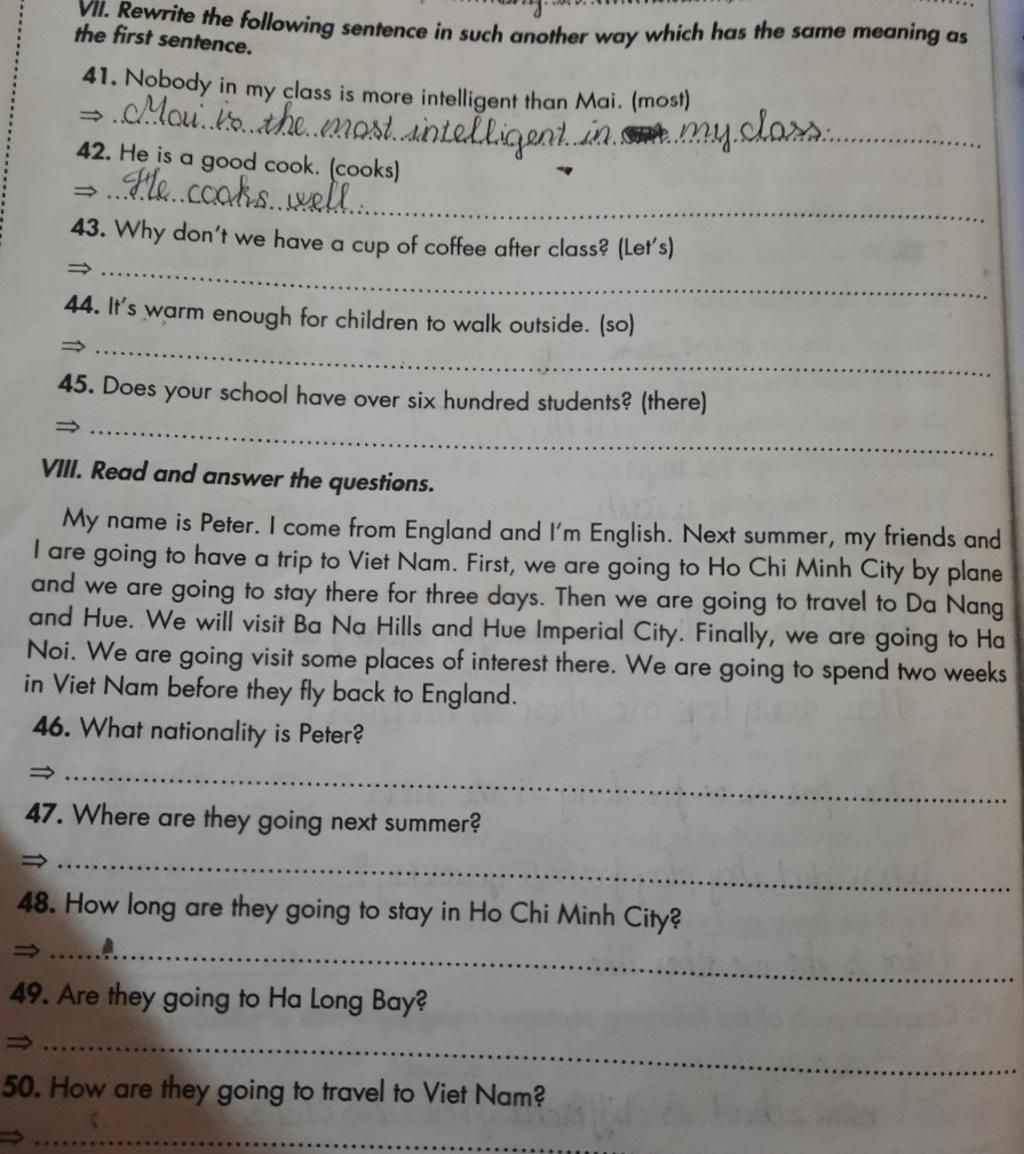 VII. Rewrite the following sentence in such another way which has the same meaning as
the first sentence.
41. Nobody in my class is more intelligent than Mai. (most)
⇒ Mai is the most intelligent in my class.
42. He is a good cook. (cooks)
⇒ He cooks well.
43. Why don't we have a cup of coffee after class? (Let's)
⇒
44. It's warm enough for children to walk outside. (so)
⇒
45. Does your school have over six hundred students? (there)
⇒
VIII. Read and answer the questions.
My name is Peter. I come from England and I'm English. Next summer, my friends and
I are going to have a trip to Viet Nam. First, we are going to Ho Chi Minh City by plane
and we are going to stay there for three days. Then we are going to travel to Da Nang
and Hue. We will visit Ba Na Hills and Hue Imperial City. Finally, we are going to Ha
Noi. We are going visit some places of interest there. We are going to spend two weeks
in Viet Nam before they fly back to England.
46. What nationality is Peter?
⇒
47. Where are they going next summer?
⇒
48. How long are they going to stay in Ho Chi Minh City?
⇒
49. Are they going to Ha Long Bay?
⇒
50. How are they going to travel to Viet Nam?
⇒